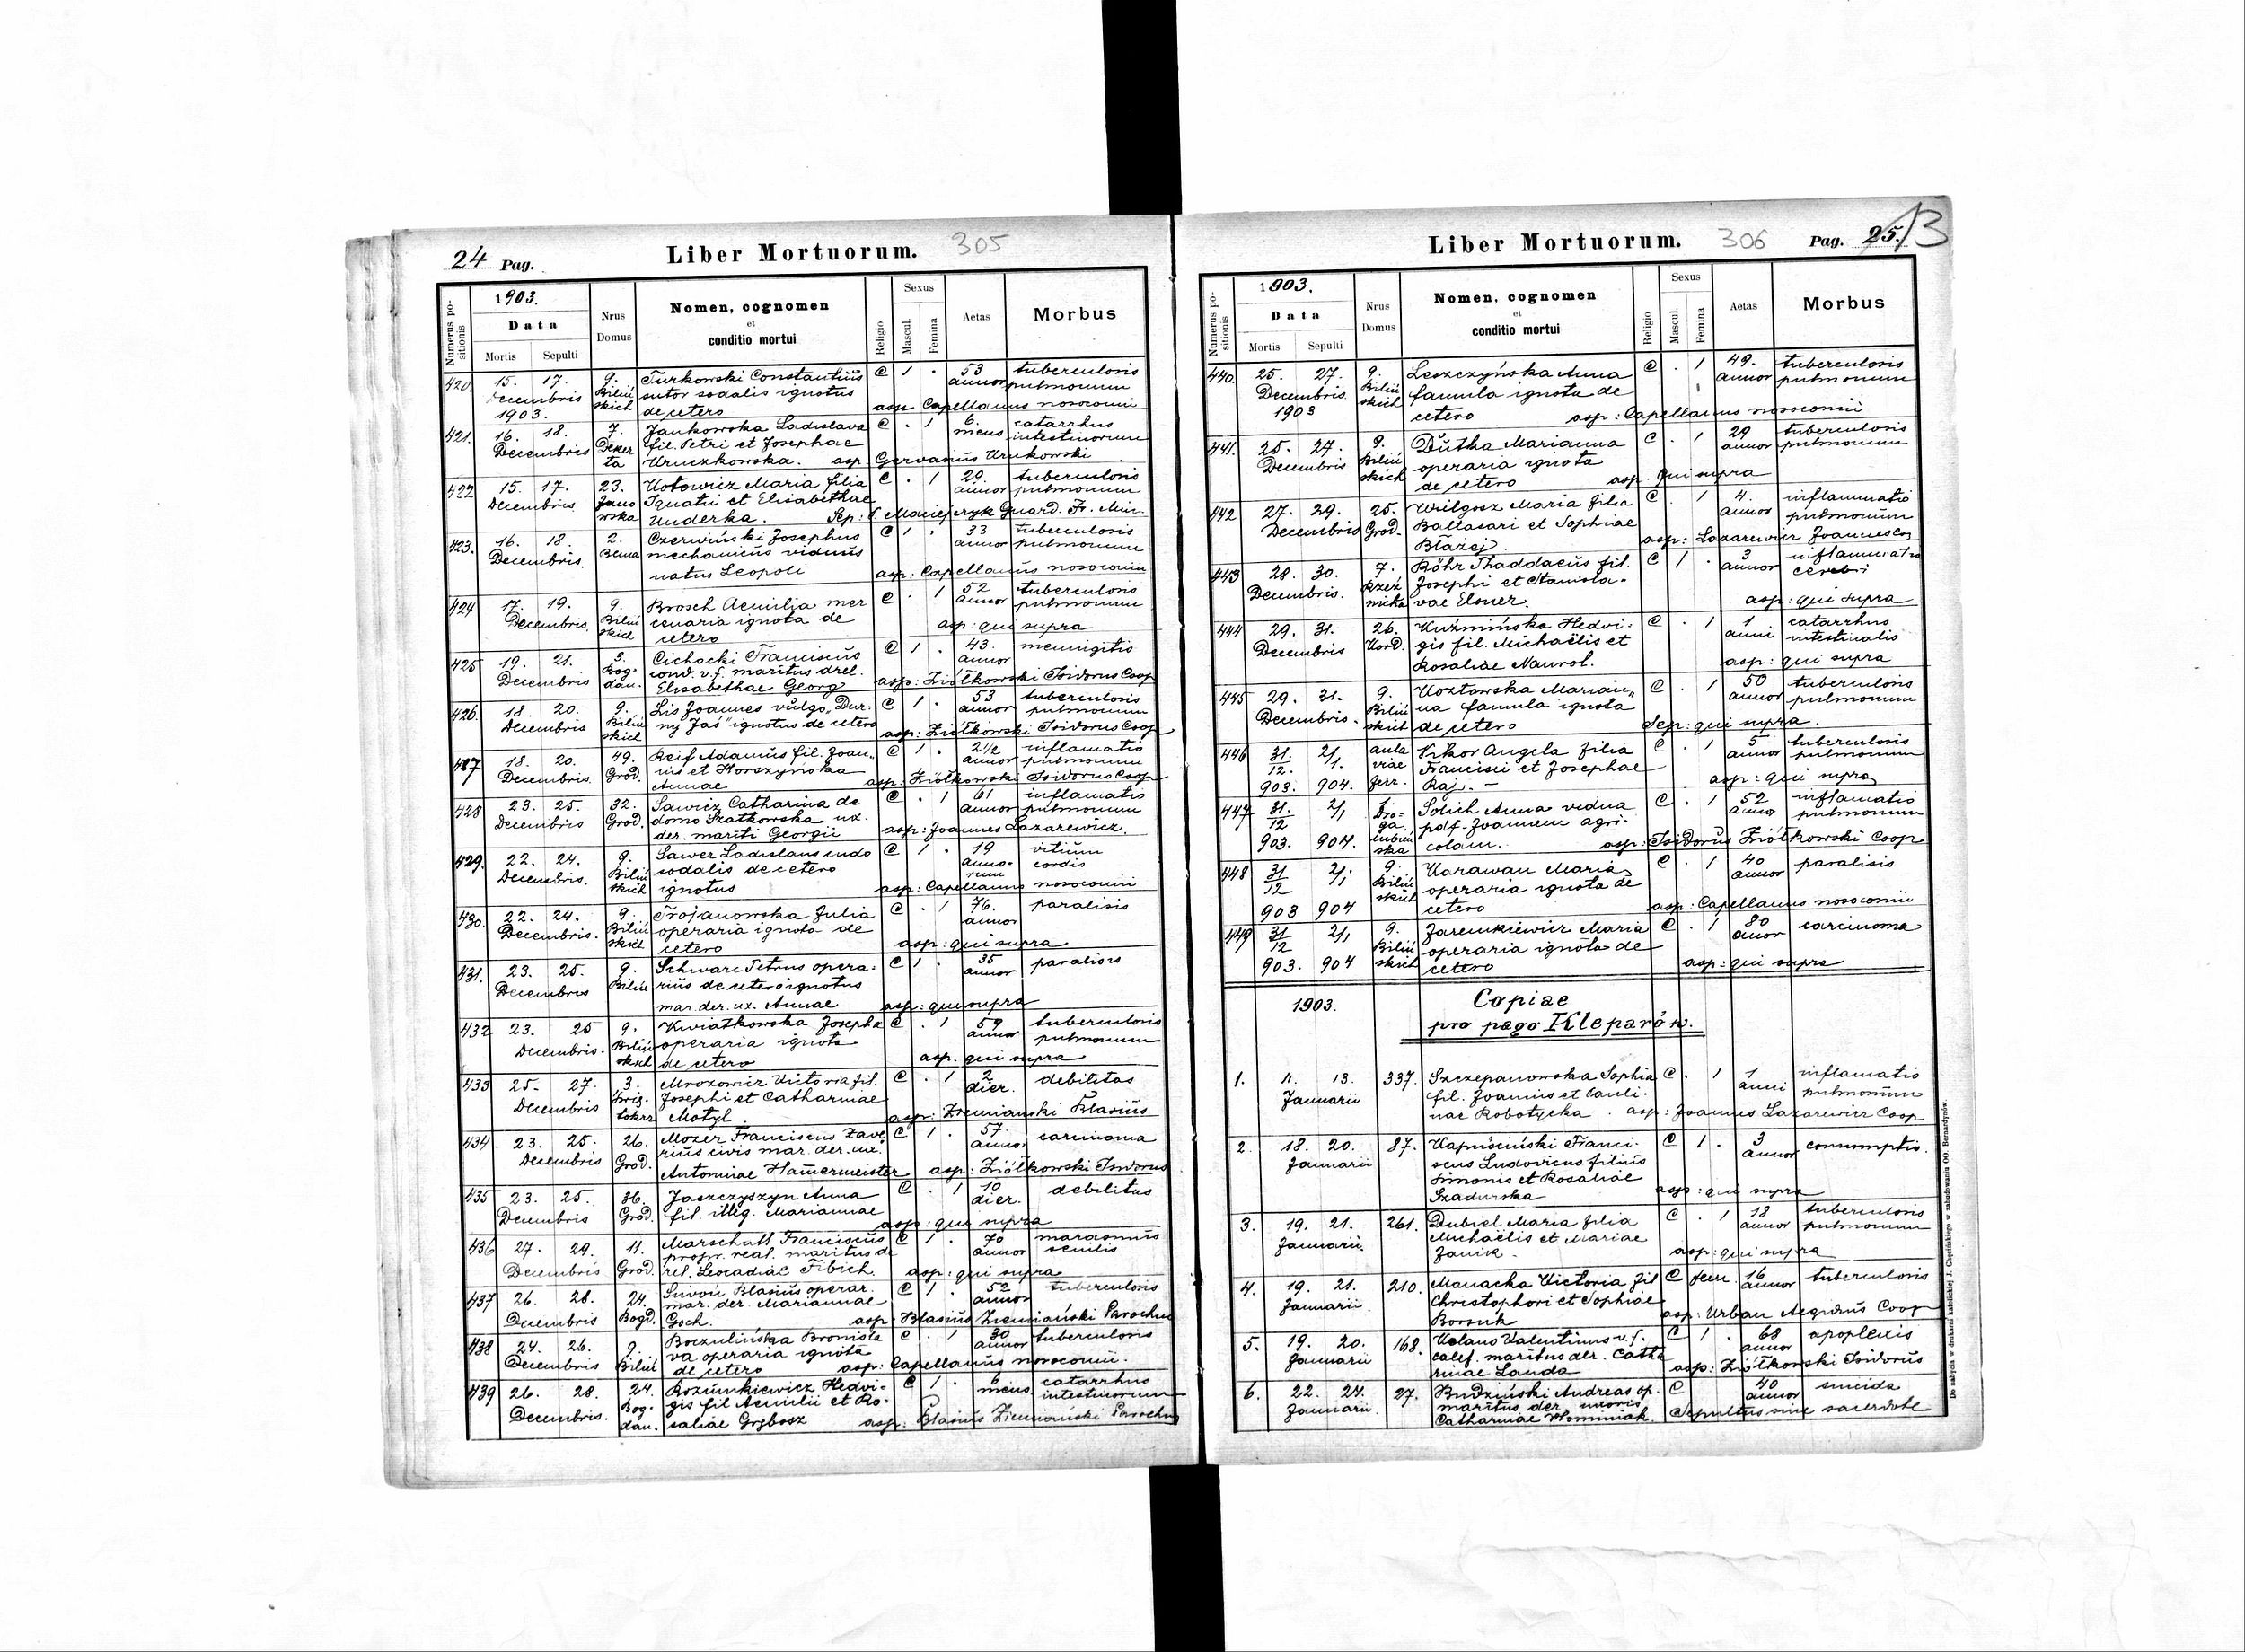 24 Pag.
Liber Mortuorum. 305
Numerus positionis
1903.
Data
Mortis Sepulti
Nrus Domus
Nomen, cognomen
et
conditio mortui
Religio
Sexus
Mascul. Femina
Aetas
Morbus
420. 15. 17. 9. Turkowski Constantiŭs C 1 . 53 tuberculosis
Decembris Biliń sutor sodalis ignotus annor pulmonum
1903. skich de cetero asp Capellanus nosocomii
421. 16. 18. 7. Jankowska Ladislava C . 1 6. catarrhus
Decembris Deker fil. Petri et Josephae mens intestinorum
ta Kruczkowska. asp Gervasiŭs Krukowski
422 15. 17. 23. Kotowicz Maria filia C . 1 20. tuberculosis
Decembris Jano Ignatii et Elisabethae annor pulmonum
wska Kuderka. Sep: Maciejczyk Guard. Fr. Min.
423. 16. 18. 2. Czerwiński Josephus C 1 . 33 tuberculosis
Decembris. Bema mechanicŭs viduŭs annor pulmonum
natus Leopoli asp: Capellanŭs nosocomii
424 17. 19. 9. Brosch Aemilia mer C . 1 52 tuberculosis
Decembris. Biliń cenaria ignota de annor pulmonum
skich cetero asp: qui supra
425 19. 21. 3. Cichocki Franciscŭs C 1 . 43. meningitis
Decembris Bog cond. v. f. maritus drel. annor
dan. Elisabethae Georg asp: Ziółkowski Isidorus Coop
426. 18. 20. 9. Lis Joannes vŭlgo „Dur: C 1 . 53 tuberculosis
Decembris Biliń ny Jaś" ignotus de cetero annor pulmonum
skich asp: Ziółkowski Isidorus Coop
427 18. 20. 49. Reif Adamŭs fil. Joan„ C 1 . 2½ inflamatio
Decembris. Gród. nis et Horszyńska annor pulmonum
Annae asp: Ziółkowski Isidorus Coop
428 23. 25. 32. Sawicz Catharina de C . 1 61 inflamatio
Decembris Gród. domo Szatkowska ux. annor pulmonum
der. mariti Georgii asp: Joannes Lazarewicz.
429. 22. 24. 9. Sawer Ladislaus sudo C 1 . 19 vitiŭm
Decembris. Biliń sodalis de cetero anno- cordis
skich ignotus rum asp: Capellanus nosocomii
430. 22. 24. 9. Trojanowska Julia C . 1 76. paralisis
Decembris. Biliń operaria ignota de annor
skich cetero asp: qui supra
431. 23. 25. 9. Schwarc Petrus opera: C 1 . 35 paralisis
Decembris Biliń riŭs de cetero ignotus annor
mar. der. ux. Annae asp: qui supra
432 23. 25 9. Kwiatkowska Josepha C . 1 59 tuberculosis
Decembris. Biliń operaria ignota annor pulmonum
skich de cetero asp. qui supra
433 25- 27. 3. Mrozowicz Victoria fil. C . 1 2 debilitas
Decembris Josephi et Catharinae dier.
Motyl. asp: Ziemianski Blasiŭs
434 23. 25. 26. Mozer Franciscus Xave C 1 . 57. carcinoma
Decembris Gród. riŭs civis mar. der. ux. annor
Antoninae Hamermeister asp: Ziółkowski Isidorus
435 23. 25. 36. Jaszczyszyn Anna C . 1 10 debilitas
Decembris Gród. fil. illeg. Mariannae dier.
asp: qui supra
436 27. 29. 11. Marschall Franciscŭs C 1 . 70 marasmŭs
Decembris Gród. propr. real. maritus de annor senilis
rel. Leocadiae Fibich. asp: qui supra
437 26. 28. 24. Blasiŭs operar. C 1 . 52 tuberculosis
Decembris Bogd. mar. der. Mariannae annor
Goch. asp: Blasiŭs Ziemiański Parochus
438 24. 26. 9. Boczulińska Bronisla C . 1 30 tuberculosis
Decembris Biliń va operaria ignota annor
de cetero asp: Capellanŭs nosocomii.
439 26. 28. 24. Rozŭmkiewicz Hedvi= C 1 . 6 catarrhus
Decembris. Bog- gis fil Aemilii et Ro- mens intestinorum
dan. saliae Grzbosz asp: Blasiŭs Ziemiański Parochus
Liber Mortuorum. 306 Pag. 25. 13
Numerus positionis
1903.
Data
Mortis Sepulti
Nrus Domus
Nomen, cognomen
et
conditio mortui
Religio
Sexus
Mascul. Femina
Aetas
Morbus
440. 25. 27. 9. Leszczyńska Anna C . 1 49. tuberculosis
Decembris Biliń famula ignota de annor pulmonum
1903 skich cetero asp: Capellanus nosocomii
441. 25. 27. 9. Dŭtka Marianna C . 1 29 tuberculosis
Decembris Biliń operaria ignota annor pulmonum
skich de cetero asp. qui supra
442 27. 29. 25. Wilgosz Maria filia C . 1 4. inflammatio
Decembris Gród. Baltasari et Sophiae annor pulmonŭm
Błażej. asp: Lazarewicz Joannes Coop
443 28. 30. 7. Böhr Thaddaeŭs fil. C 1 . 3 inflammatio
Decembris. Rzeź Josephi et Stanisla- annor cerebri
nicka vae Elsner. asp: qui supra
444 29. 31. 26. Kuźmińska Hedvi- C . 1 1 catarrhus
Decembris Kord. gis fil. Michaëlis et anni intestinalis
Rosaliae Nawrol. asp: qui supra
445 29. 31. 9. Kozłowska Marian„ C . 1 50 tuberculosis
Decembris. Biliń na famula ignota annor pulmonum
skich de cetero Sep: qui supra.
446 31. 2/1 aula Wikor Angela filia C . 1 5 tuberculosis
12. 1. viae Francisci et Josephae annor pulmonum
903. 904. ferr. Raj. - asp: qui supra
447 31. 2/1 Dro= Solich Anna vidua C . 1 52 inflamatio
12 ga pdf. Joannem agri- annor pulmonum
903. 904. lubiń ska colam. asp: Isidorŭs Ziółkowski Coop
448 31 2/1 9. Karawan Maria C . 1 40 paralisis
12 Biliń operaria ignota de annor
903 904 skich cetero asp: Capellanus nosocomii
449 31 2/1 9. Jaremkiewicz Maria C . 1 80 carcinoma
12 Biliń operaria ignota de annor
903. 904 skich cetero asp: qui supra
1903. Copiae
pro pago Kleparów.
1. 11. 13. 337. Szczepanowska Sophia C . 1 1 inflamatio
Januarii fil. Joannis et Pauli- anni pulmonŭm
nae Robotycka. asp: Joannes Lazarewicz Coop
2. 18. 20. 87. Kapuściński Franci- C 1 . 3 consumptio.
Januarii scus Ludovicus filiŭs annor
Simonis et Rosaliae
Szadurska asp: qui supra
3. 19. 21. 261. Dubiel Maria filia C . 1 18 tuberculosis
Januarii. Michaëlis et Mariae annor pulmonum
Janik. asp: qui supra
4. 19. 21. 210. Manacka Victoria fil C fem. 16 tuberculosis
Januarii Christophori et Sophiae annor
Borsuk asp: Urban Aegidiŭs Coop
5. 19. 20. 168. Kolano Valentinus v. f. C 1 . 68 apoplexis
Januarii calef. maritus der. Catha annor
rinae Landa asp: Ziółkowski Isidorŭs
6. 22. 24. 27. Budziński Andreas op. C 40 suicida
Januarii. maritus der. uxoris annor
Catharinae Womniak. Sepultus sine sacerdote
Do nabycia w drukarni katolickiej J. Chęcińskiego w zabudowaniu OO. Bernardynów.